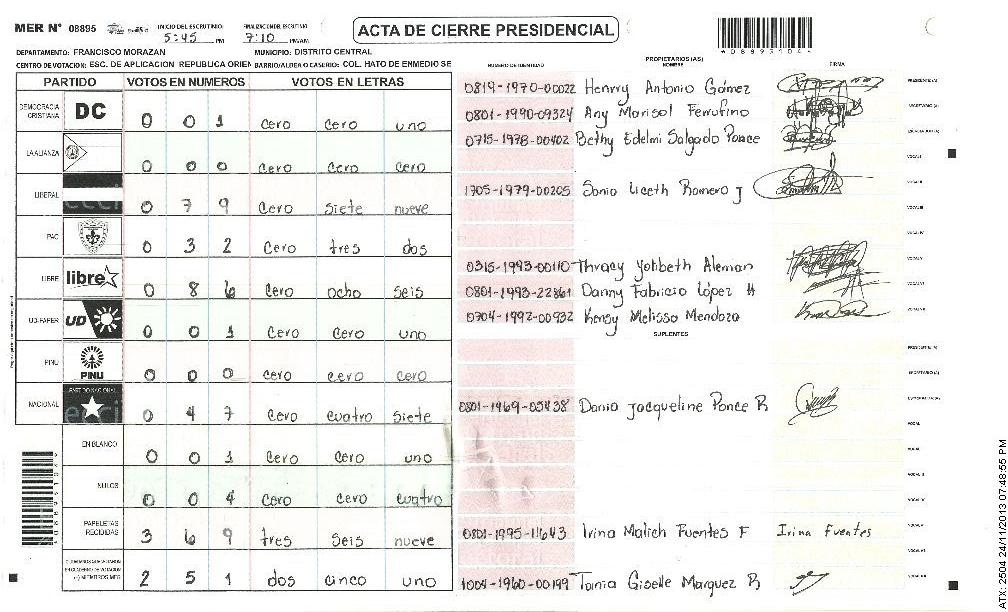 MER N° 08895
INICIO DEL ESCRUTINIO 5:45 PM
FINALIZACION DEL ESCRUTINIO 7:10 PM/AM
ACTA DE CIERRE PRESIDENCIAL
*088951044*
DEPARTAMENTO: FRANCISCO MORAZAN MUNICIPIO: DISTRITO CENTRAL
CENTRO DE VOTACION: ESC. DE APLICACION REPUBLICA ORIEN BARRIO/ALDEA O CASERIO: COL. HATO DE ENMEDIO SE
PARTIDO VOTOS EN NUMEROS VOTOS EN LETRAS
DEMOCRACIA CRISTIANA DC 0 0 1 cero cero uno
LA ALIANZA 0 0 0 cero cero cero
LIBERAL 0 7 9 cero siete nueve
PAC 0 3 2 cero tres dos
LIBRE libre 0 8 6 cero ocho seis
UD-FAPER UD 0 0 1 cero cero uno
PINU PINU 0 0 0 cero cero cero
NACIONAL PARTIDO NACIONAL 0 4 7 cero cuatro siete
EN BLANCO 0 0 1 cero cero uno
NULOS 0 0 4 cero cero cuatro
PAPELETAS RECIBIDAS 3 6 9 tres seis nueve
(+) MIEMBROS MER 2 5 1 dos cinco uno
NUMERO DE IDENTIDAD
PROPIETARIOS (AS)
NOMBRE
FIRMA
0819-1970-00022 Henrry Antonio Gómez PRESIDENTE(A)
0801-1990-09324 Any Marisol Ferrofino SECRETARIO (A)
0715-1978-00402 Bethy Edelmi Salgado Ponce
VOCAL I
1705-1979-00205 Sonia Liceth Romero J VOCAL II
VOCAL III
VOCAL IV
0315-1993-00110 Thracy Yohbeth Aleman VOCAL V
0801-1993-22861 Danny Fabricio López H VOCAL VI
0704-1992-00932 Kensy Melissa Mendoza VOCAL VII
SUPLENTES
PRESIDENTE (A)
SECRETARIO (A)
0801-1969-05438 Dania Jacqueline Ponce R
VOCAL I
VOCAL II
0801-1995-11643 Irina Malich Fuentes F Irina Fuentes
1004-1960-00199 Tania Giselle Marquez R
ATX-2504 24/11/2013 07:48:55 PM